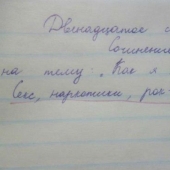 Двенадцатое
Сочинение
на тему: "Как я
Секс, наркотики, рок-